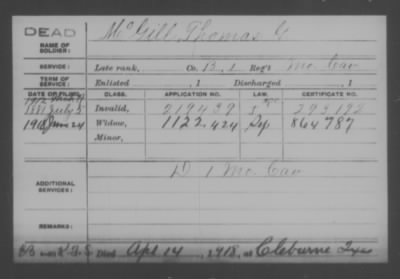 DEAD
NAME OF SOLDIER: McGill Thomas G
SERVICE: Late rank, Co. B, 1 Reg't Mo. Cav
TERM OF SERVICE: Enlisted , 1 Discharged , 1
DATE OF FILING. CLASS. APPLICATION NO. LAW. CERTIFICATE NO.
1881 July 5 Invalid, 219439 293192
1918 24 Widow, 1122424 Sep 864787
Minor,
D 1 Mo. Cav
ADDITIONAL SERVICES:
REMARKS:
Died Apl 14, 1918, at Cleburne Tex